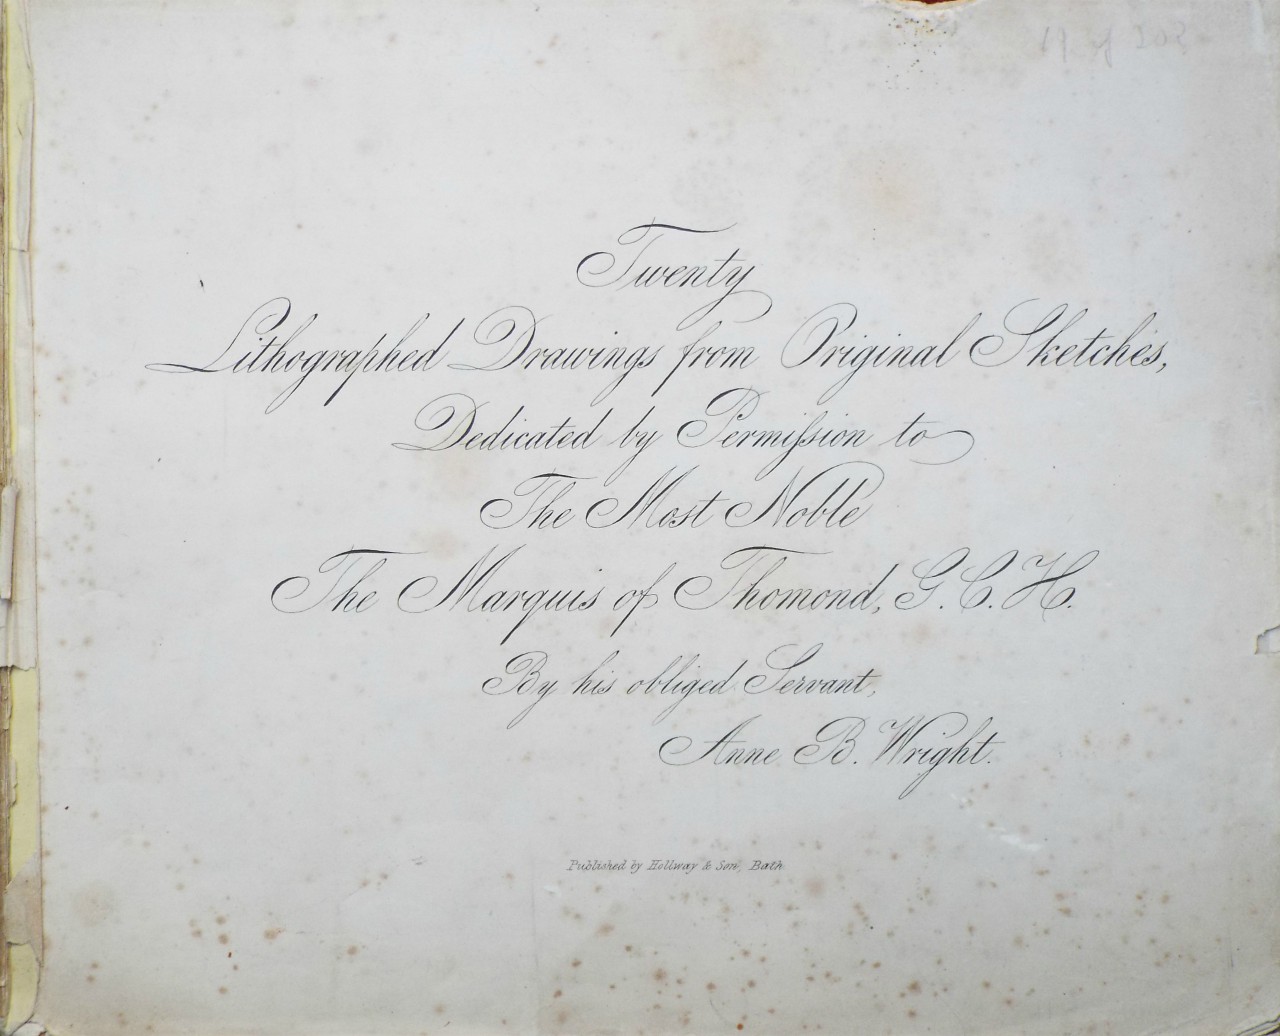 19 of 203
Twenty
Lithographed Drawings from Original Sketches,
Dedicated by Permiſsion to
The Most Noble
The Marquis of Thomond, G.C.H.
By his obliged Servant,
Anne B. Wright.
Published by Hollway & Son, Bath